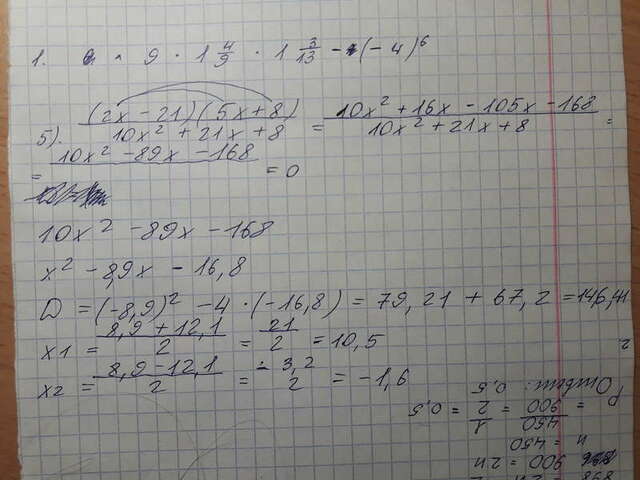 1. 9 · 1 4/9 · 1 3/13 - (-4)^6
5). (2x - 21)(5x + 8) / 10x² + 21x + 8 = 10x² + 16x - 105x - 168 / 10x² + 21x + 8 =
= 10x² - 89x - 168 = 0
10x² - 89x - 168
x² - 8,9x - 16,8
D = (-8,9)² - 4 · (-16,8) = 79,21 + 67,2 = 146,41
x1 = 8,9 + 12,1 / 2 = 21 / 2 = 10,5
x2 = 8,9 - 12,1 / 2 = - 3,2 / 2 = -1,6
900 = 2n
n = 450
P = 450 / 900 = 1 / 2 = 0,5
Ответ: 0,5